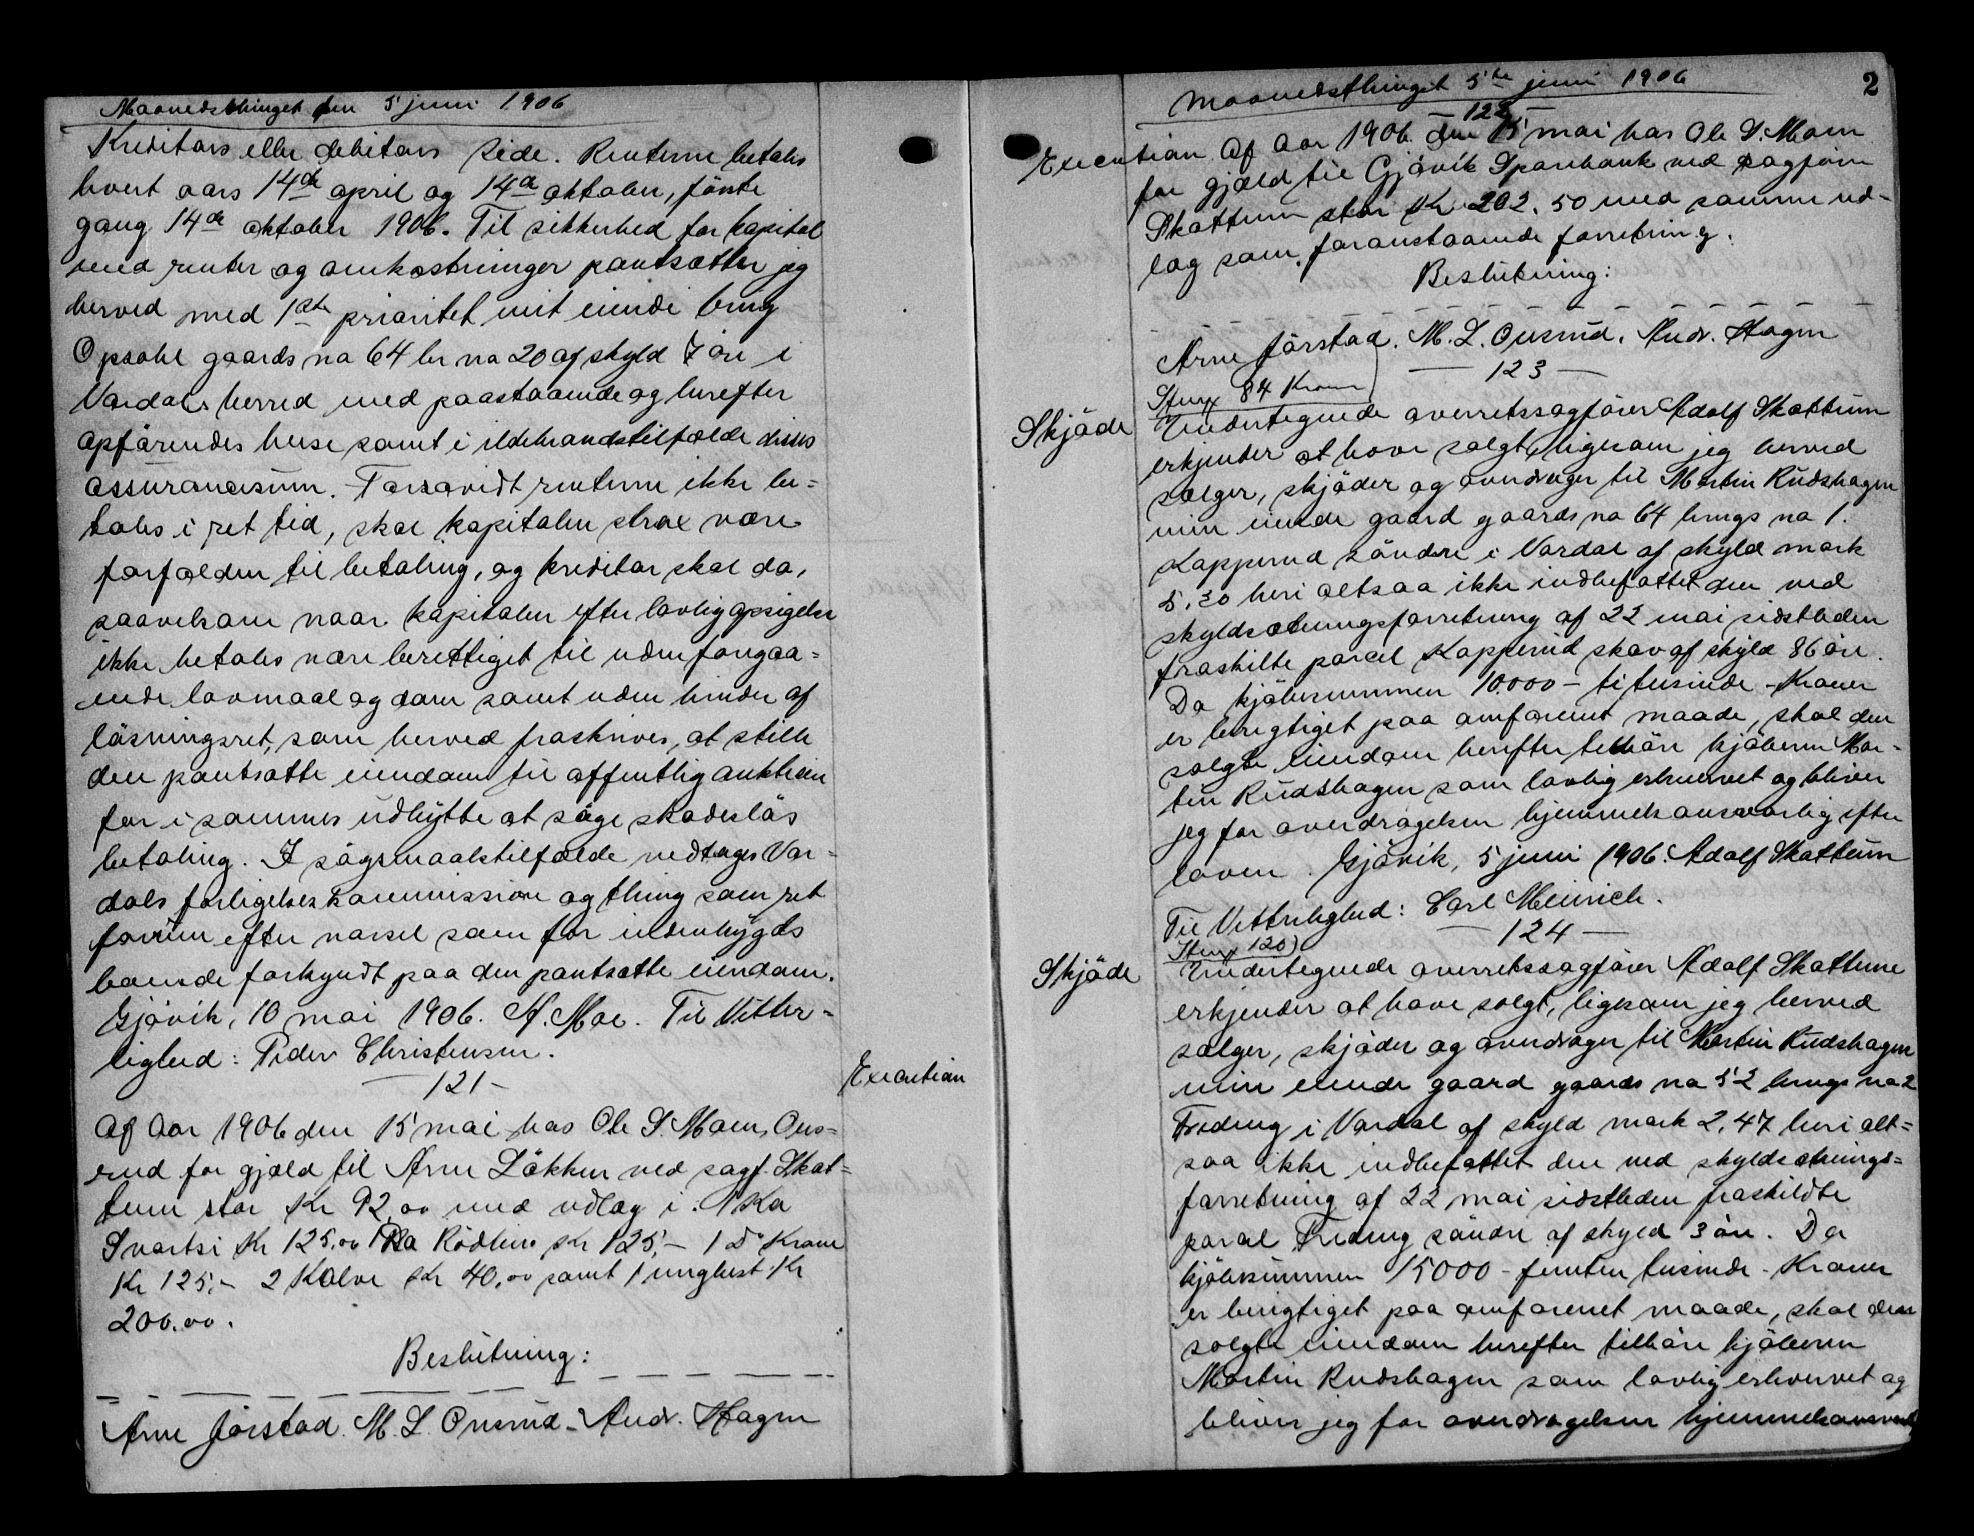 Maanedsthinget den 5 juni 1906
Kreditors eller debitors side. Renterne betales
hvert aars 14de april og 14de oktober, förste
gang 14de oktober 1906. Til sikkerhed for kapital
med renter og omkostninger pantsætter jeg
herved med 1ste prioritet mit eiende brug
Opsahl gaards no 64 br no 20 af skyld 7 öre i
Vardals herred med paastaaende og herefter
opförendes huse samt i ildebrandstilfælde disses
assurancesum. Forsavidt renterne ikke be-
tales i ret tid, skal kapitalen strax være
forfalden til betaling, og kreditor skal da,
saavelsom naar kapitalen efter lovlig opsigelse
ikke betales være berettiget til uden forgaa-
ende lovmaal og dom samt uden hinder af
läsningsret, som herved fraskrives, at stille
den pantsatte eiendom til offentlig auktion
for i sammes udbytte at söge skadeslös
betaling. I sögsmaalstilfælde vedtages Var-
dals forligelseskommission og thing som ret
forum efter varsel som for indenbygds
boende forkyndt paa den pantsatte eiendom.
Gjövik, 10 mai 1906. H. Moe. Til Vitter-
lighed: Peder Christensen.
— 121 —
Execution
Af Aar 1906 den 15 mai hos Ole S. Moen, Ous-
rud for gjæld til Arne Lökken ved sagf. Skat-
tum stor Kr 92,00 med udlæg i: 1 Ko
Svartsi Kr 125,00 1 Ko Rödlin Kr 125,- 1 Do Krone
Kr 125,- 2 Kalve Kr 40,00 samt 1 unghest Kr
200.00.
Beslutning:
Arne Jörstad. M. L. Ousrud. Andr. Hagen
Maanedsthinget 5te juni 1906
2
— 122 —
Execution
Af Aar 1906 den 15 mai hos Ole S. Moen
for gjæld til Gjövik Sparebank ved sagförer
Skattum stor Kr 202.50 med samme ud-
læg som foranstaaende forretning.
Beslutning:
Arne Jörstad. M. L. Ousrud. Andr. Hagen
— 123 —
Stemp 84 Kroner
Skjöde
Undertegnede overretssagförer Adolf Skattum
erkjender at have solgt, ligesom jeg herved
sælger, skjöder og overdrager til Martin Rudshagen
min eiende gaard gaards no 64 brugs no 1.
Kapperud söndre i Vardal af skyld mark
5,30 heri altsaa ikke indbefattet den ved
skyldsætningsforretning af 22 mai sidstleden
fraskilte parcel Kapperud skov af skyld 86 öre.
Da kjöbesummen 10000 - titusinde - Kroner
er berigtiget paa omforenet maade, skal den
solgte eiendom herefter tilhöre kjöberen Mar-
tin Rudshagen som lovlig erhvervet og bliver
jeg for overdragelsen hjemmelsansvarlig efter
loven. Gjövik, 5 juni 1906. Adolf Skattum
Til Vitterlighed: Carl Meinich.
— 124 —
Stemp 120)
Skjöde
Undertegnede overretssagförer Adolf Skattum
erkjender at have solgt, ligesom jeg herved
sælger, skjöder og overdrager til Martin Rudshagen
min eiende gaard gaards no 52 brugs no 2
Freding i Vardal af skyld mark 2,47 heri alt-
saa ikke indbefattet den ved skyldsætnings-
forretning af 22 mai sidstleden fraskildte
parcel Freding söndre af skyld 3 öre. Da
kjöbesummen 15000 - femten tusinde - Kroner
er berigtiget paa omforenet maade, skal den
solgte eiendom herefter tilhöre kjöberen
Martin Rudshagen som lovlig erhvervet og
bliver jeg for overdragelsen hjemmelsansvarl